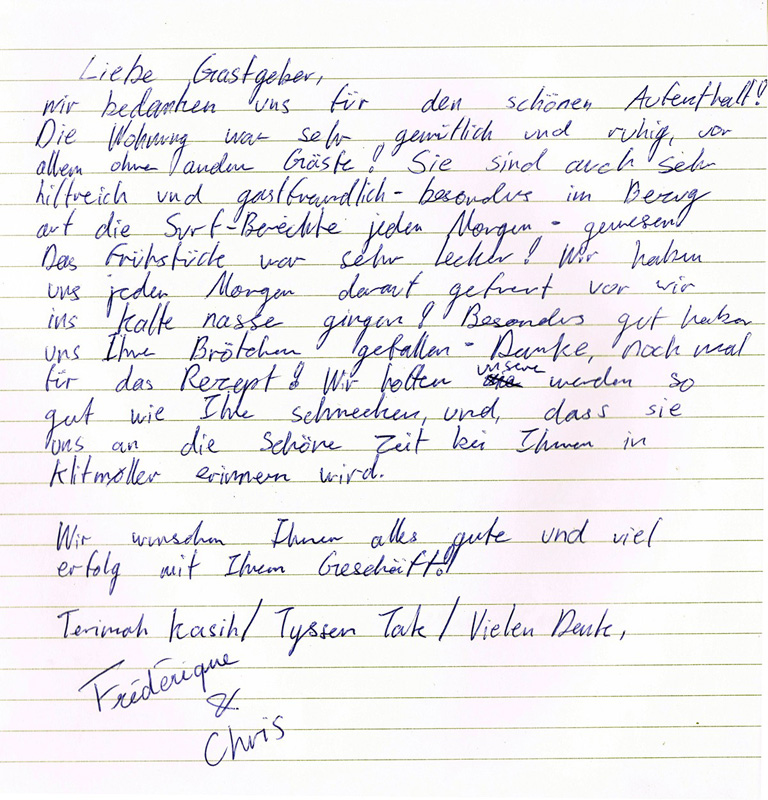 Liebe Gastgeber,
wir bedanken uns für den schönen Aufenthalt!
Die Wohnung war sehr gemütlich und ruhig, vor
allem ohne andere Gäste! Sie sind auch sehr
hilfreich und gastfreundlich - besonders im Bezug
auf die Surf-Berichte jeden Morgen - gewesen
Das Frühstück war sehr lecker! Wir haben
uns jeden Morgen darauf gefreut vor wir
ins kalte nasse gingen! Besonders gut haben
uns Ihre Brötchen gefallen - Danke, noch mal
für das Rezept! Wir hoffen unsere werden so
gut wie Ihre schmecken, und, dass sie
uns an die Schöne Zeit bei Ihnen in
Klitmøller erinnern wird.
Wir wunschen Ihnen alles gute und viel
erfolg mit Ihrem Geschäft!
Terimah Kasih / Tyssen Tak / Vielen Dank,
Frédérique
&
Chris